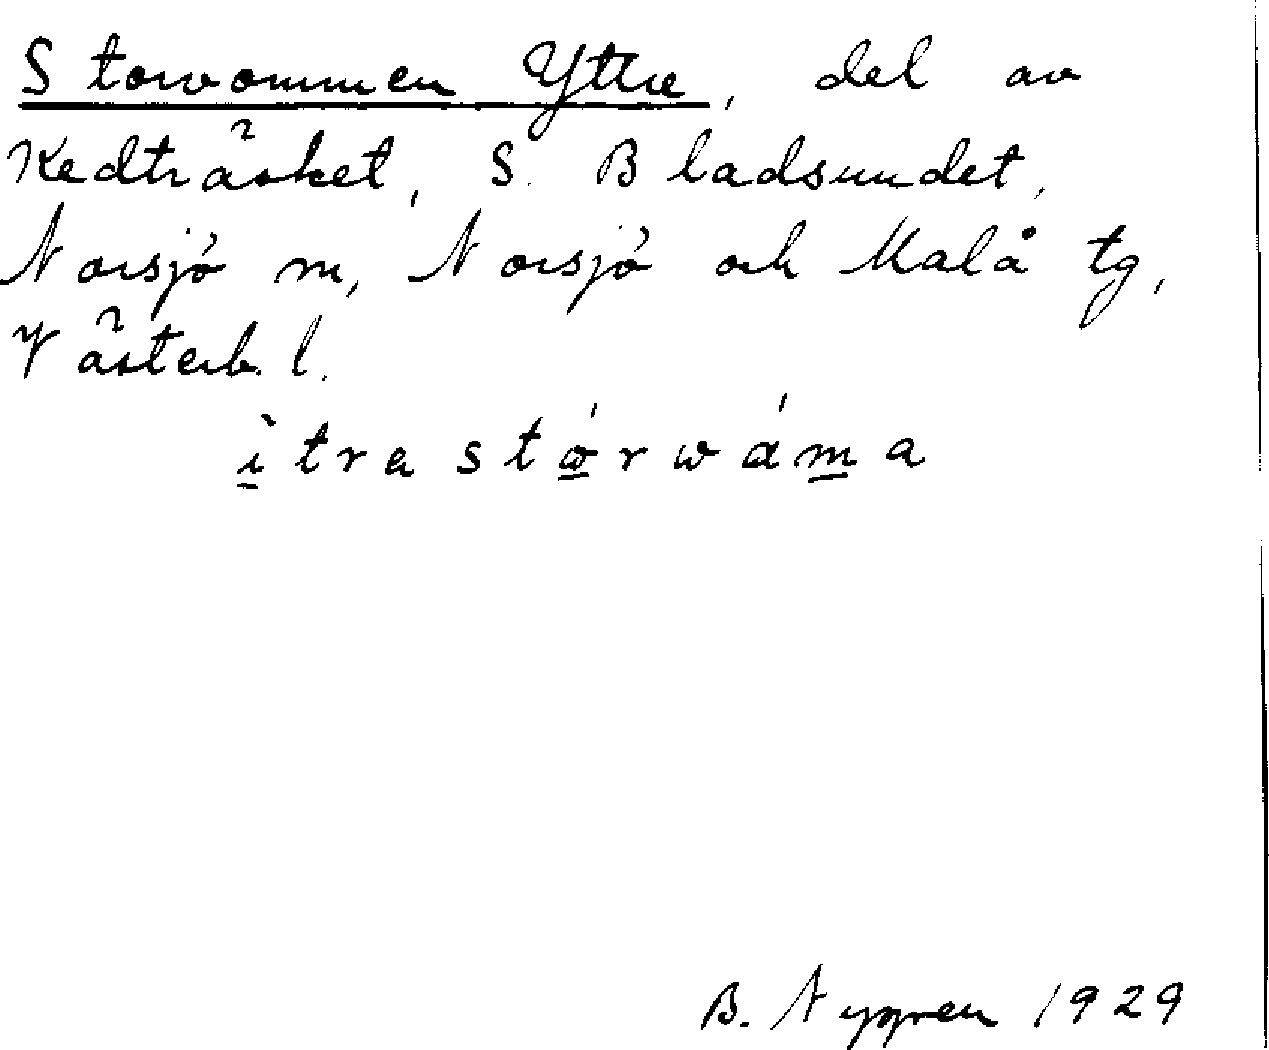 Storvommen Yttre, del av
Kedträsket, S. Bladsundet,
Norsjö m, Norsjö och Malå tg,
Västerb. l.
ı̀tra størwáma
B. Nygren 1929